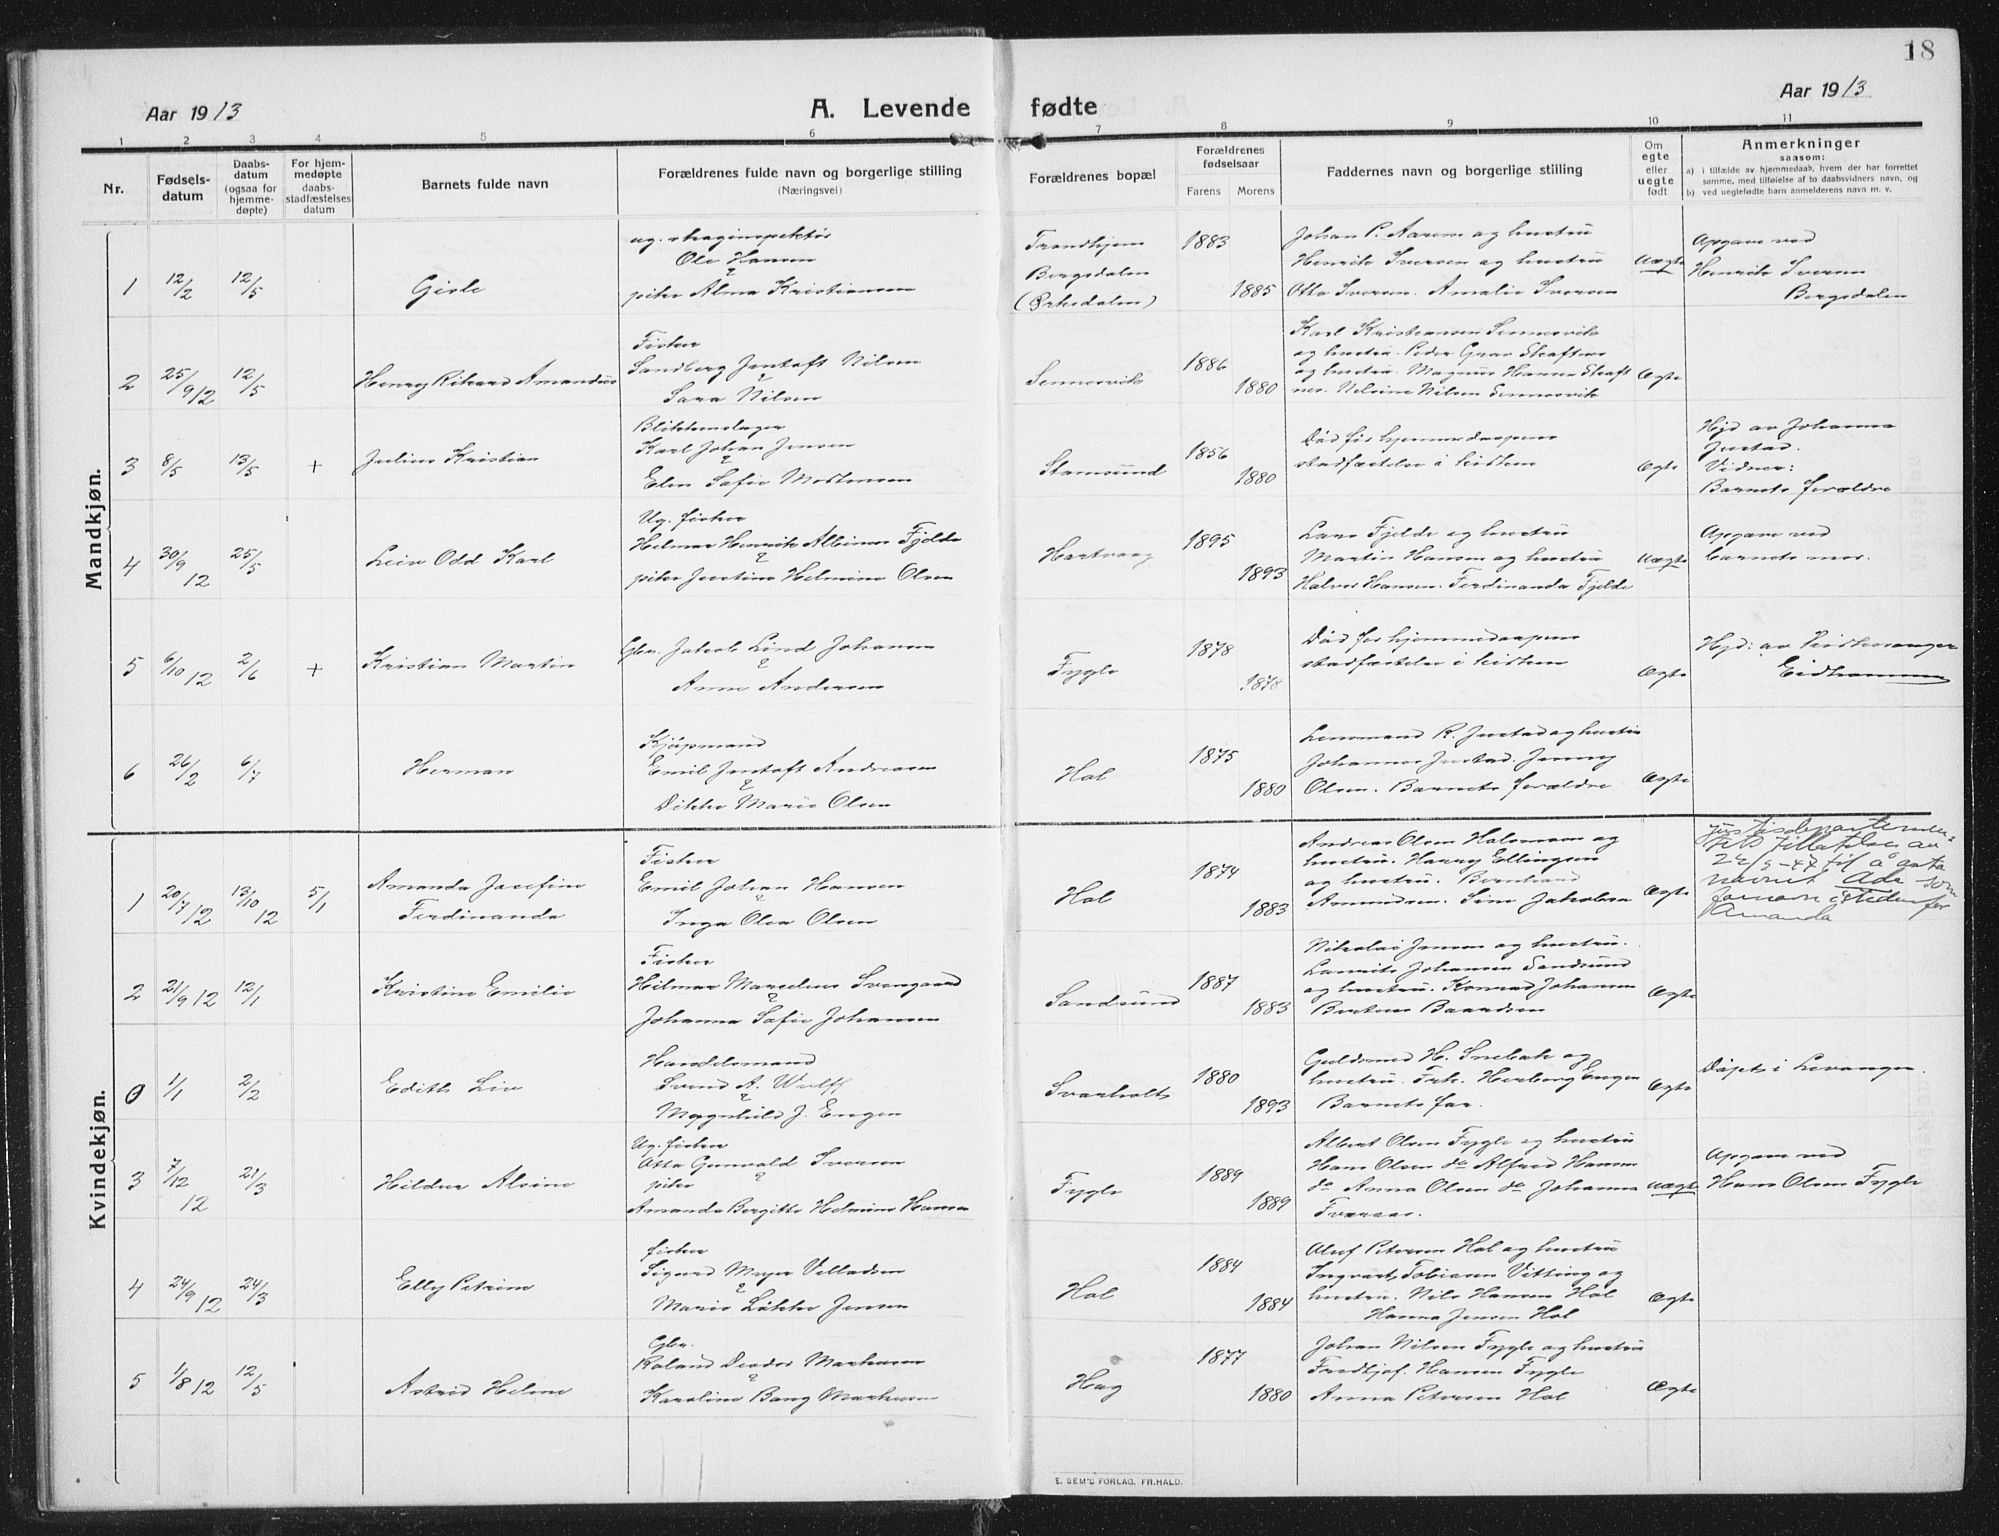 18
Aar 1913
A. Levende fødte
Aar 1913
1 2 3 4 5 6 7 8 9 10 11
Nr.
Fødsels-
datum
Daabs-
datum
(ogsaa for
hjemme-
døpte)
For hjem-
medøpte
daabs-
stadfæstelses
datum
Barnets fulde navn
Forældrenes fulde navn og borgerlige stilling
(Næringsvei)
Forældrenes bopæl
Forældrenes
fødselsaar
Farens Morens
Faddernes navn og borgerlige stilling
Om
egte
eller
uegte
født
Anmerkninger
saasom:
a) i tilfælde av hjemmedaab, hvem der har forrettet
samme, med tilføielse af to daabsvidners navn, og
b) ved uegtefødte barn anmelderens navn m. v.
Mandkjøn.
1 12/2 12/5 Gisle
ug.
Ole Hansen
pike Alma Kristiansen
Trondhjem
Bergsdalen
(Orkedalen)
1883
1885
Johan P. Aarem og hustru
Henrik Iversen og hustru
Otto Iversen. Amalie Iversen
Uægte
Opgave ved
Henrik Iversen
Bergsdalen
2 25/9 12 12/5 Henry Rikard Amandus
Fisker
Sandberg Jentoft Nilsen
Sara Nilsen
Sennesvik
1886
1880
Karl Kristiansen Sennesvik
og hustru. Peder Grav Skaftnes
og hustru. Magnus Hansen Skaft
nes. Nelsine Nilsen Sennesvik
Ægte
3 8/5 13/5 + Julius Kristian
Blikkenslager
Karl Johan Jensen
Elen Sofie Mortensen
Stamsund
1856
1880
Død før hjemmedaapens
stadfæstelse i kirken
Ægte
Hjd av Johanna
Justad.
Vidner:
Barnets forældre
4 30/9 12 25/5 Leiv Odd Karl
Ug. fisker
Helmer Henrik Albinus Fjelde
pike Justine Helmine Olsen
Hartvaag
1895
1893
Lars Fjelde og hustru
Martin Hansen og hustru
Halvor Hansen. Ferdinanda Fjelde
Uægte
Opgave ved
barnets mor.
5 6/10 12 2/6 + Kristian Martin
Gbr. Jakob Lind Johansen
Anne Andersen
Fygle
1878
1878
Død før hjemmedaapens
stadfæstelse i kirken
Ægte
Hjd: av kirkesanger
Eidhammer
6 26/2 6/7 Herman
Kjøpmand
Emil Jentoft Andreasen
Dikka Marie Olsen
Hol
1875
1880
Lensmand R. Justad og hustru
Johannes Justad. Jenny
Olsen. Barnets forældre
Ægte
Kvindekjøn.
1 20/7 12 13/10 12 5/1 Amanda Josefine
Ferdinanda
Fisker
Emil Johan Hansen
Inga Olea Olsen
Hol
1874
1883
Andreas Olsen Holsmoen og
hustru. Harry Ellingsen
og hustru. Bernhard
Amundsen. Sine Jakobsen
Ægte
Justisdepartemen-
tets tillatelse av
22/9-47 til å anta
navnet Ada som
fornavn istedenfor
Amanda
2 21/9 12 12/1 Kristine Emilie
Fisker
Hilmar Marselius Svengaard
Johanna Sofie Johansen
Sandsund
1887
1883
Nikolai Jensen og hustru.
Laurits Johansen Sandsund
og hustru. Konrad Johansen
Ægte
0 1/1 2/2 Edith Liv
Handelsmand
Svend A. Wulff
Magnhild J. Engen
Svarholt
1880
1893
Guldsmed H. Snebak og
hustru. Frk. Herborg Engen
Barnets far.
Ægte
Døpt i Levanger.
3 7/12 12 21/3 Hildur Alvine
Ug. fisker
Otto Gunvald Iversen
pike
Amanda Bergitte Helmine Hansen
Fygle
1889
1889
Albert Olsen Fygle og hustru
Hans Olsen do Alfred Hansen
do Anna Olsen do Johanna
Uægte
Opgave ved
Hans Olsen Fygle
4 24/9 12 24/3 Elly Petrine
fisker
Sigurd Meyer Villadsen
Marie Løkke Jensen
Hol
1884
1884
Oluf Petersen Hol og hustru
Ingvart Tobiasen Vitting og
hustru. Nils Hansen Hol
Hanna Jensen Hol
Ægte
5 1/8 12 12/5 Astrid Helene
Gbr.
Roland Deodor Markussen
Karoline Bang Markussen
Hag
1877
1880
Johan Nilsen Fygle og hustru
Fredtjof Hansen Fygle
Anna Petersen Hol
Ægte
E. SEM'S FORLAG, FR.HALD.